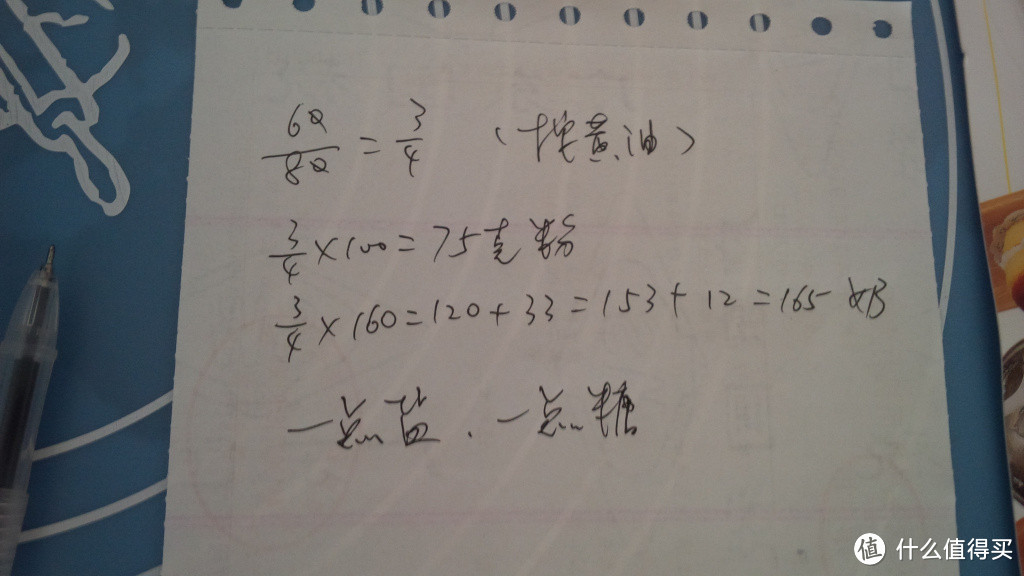 60/80 = 3/4 (按黄油)
3/4 × 100 = 75克粉
3/4 × 160 = 120 + 33 = 153 + 12 = 165 奶
一点盐、一点糖
值 什么值得买